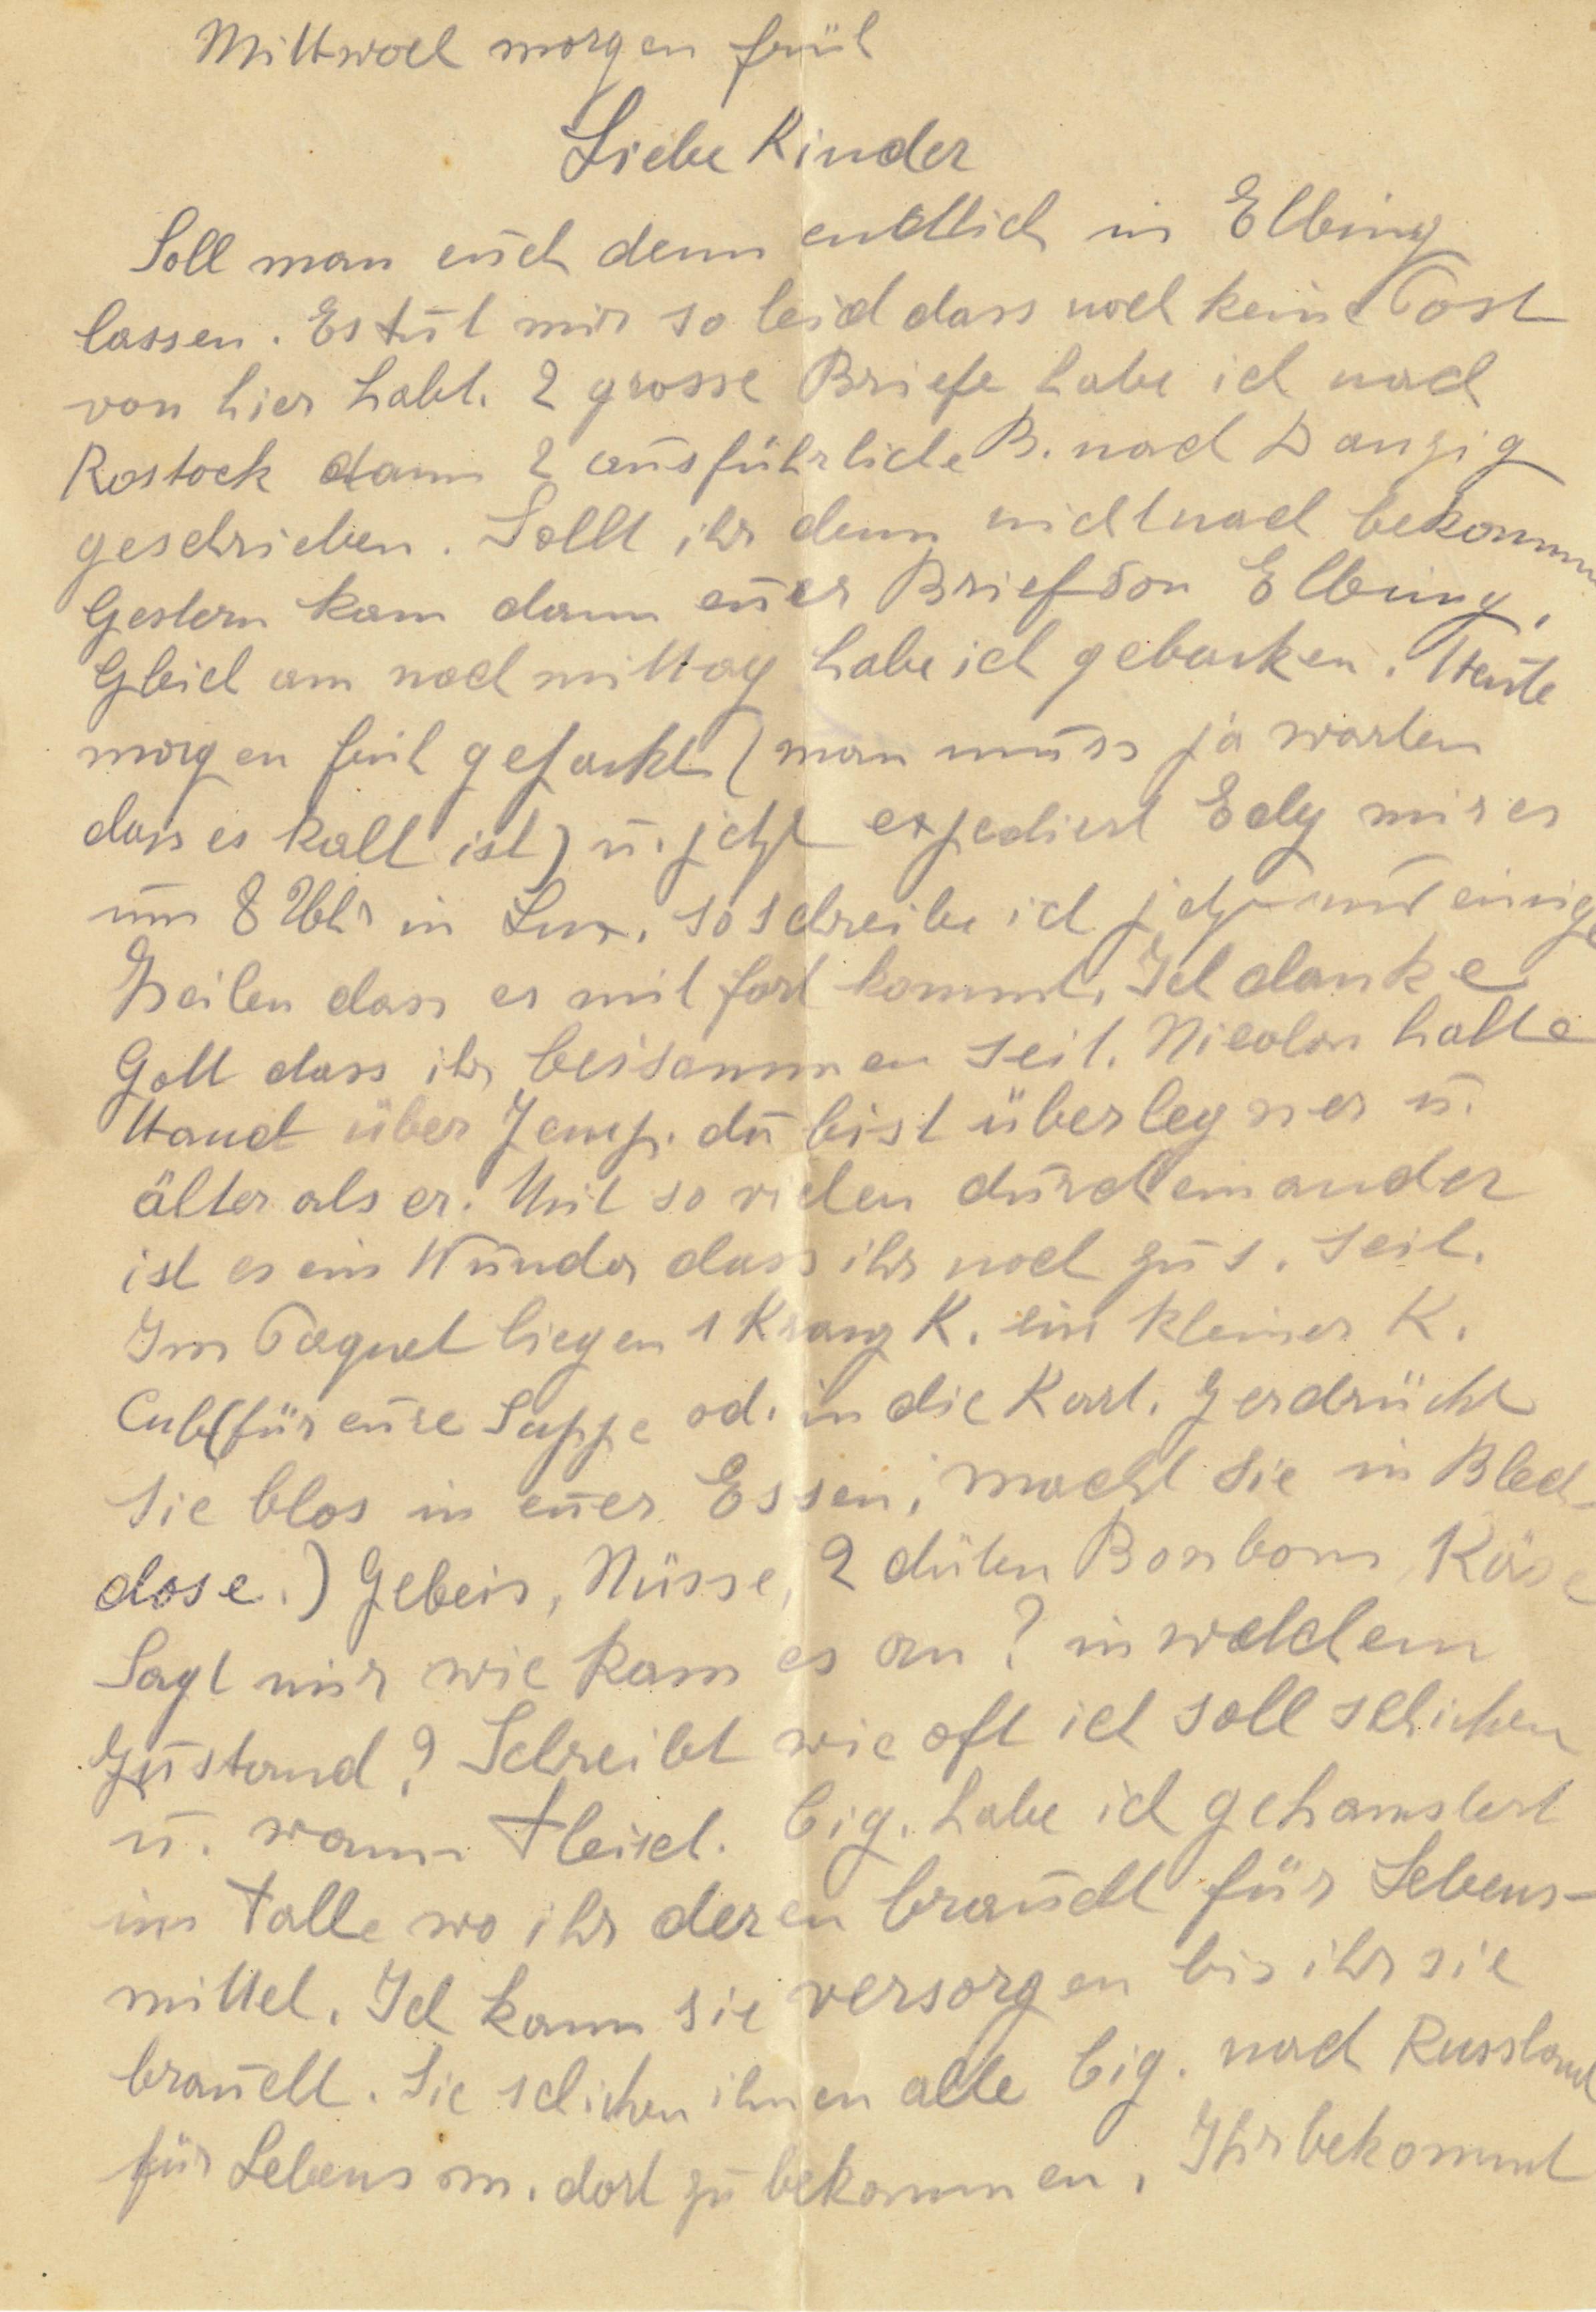 Mittwoch morgen früh
Liebe Kinder
Soll man euch denn endlich in Elbing
lassen. Es tut mir so leid dass noch keine Post
von hier habt. 2 grosse Briefe habe ich nach
Rostock dann 2 ausführliche B. nach Danzig
geschrieben. Sollt ihr denn nicht nach bekommen
Gestern kam dann euer Brief von Elbing,
Gleich am nachmittag habe ich gebacken. Heute
morgen früh gepackt (man muss ja warten
dass es kalt ist) u. jetzt expediert Edy mir es
um 8 Uhr in Lux. so schreibe ich jetzt nur einige
Zeilen dass es mit fort kommt. Ich danke
Gott dass ihr beisammen seit. Nicolas halte
Hand über Jemp. du bist überlegner u.
älter als er. Mit so vielen durcheinander
ist es ein Wunder dass ihr noch zus. seit.
Im Paquet liegen 1 Kranz K. ein kleiner K.
Cub (für eure Suppe od. in die Kart. zerdrückt
sie blos in euer Essen, macht sie in Blech-
dose.) Gebeis, Nüsse, 2 düten Bonbons, Käse
Sagt mir wie kam es an? in welchem
Zustand? Schreibt wie oft ich soll schicken
u. wann Fleisch. Cig. habe ich gehamstert
im Falle wo ihr deren braucht für Lebens-
mittel. Ich kann sie versorgen bis ihr sie
braucht. Sie schicken ihnen alle Cig. nach Russland
für Lebensm. dort zu bekommen. Ihr bekommt